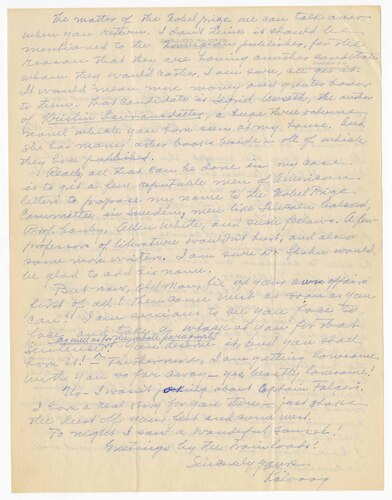 The matter of the Nobel prize we can talk over
when you return. I don't think it should be
mentioned to the publisher, for the
reason that they are having another candidate
whom they would rather, I am sure, see get it.
It would mean more money and greater honor
to them. That candidate is Sigrid Undset, the author
of Kristin Lavransdatter, a huge three volume
novel which you have seen at my house. And
she has many other books beside – all of which
they have published.
Really all that can be done in my case
is to get a few reputable men of American
letters to propose my name to the Nobel Prize
Committee in Sweden, men like Lincoln Colcord,
Prof. Canby, Allen White, and such fellows. A few
professors of literature wouldn't hurt, and also
some more writers. I am sure Dr. would
be glad to add his name.
But now, Old Man, fix up your own affairs
first of all! Then come west as soon as you
can!! I am anxious to see you face to
face and take a whack at you for that
as well as for the whole paragraph
sentimental and you shall
have it! Furthermore, I am getting lonesome
with you so far away – yes, beastly lonesome!
No – I wasn't joking about Captain Falger.
I have a real story for you there – just shake
the dust off your feet and come west.
To night I saw a wonderful sunset!
Greetings by the trainloads!
Sincerely yours
Rölvaag